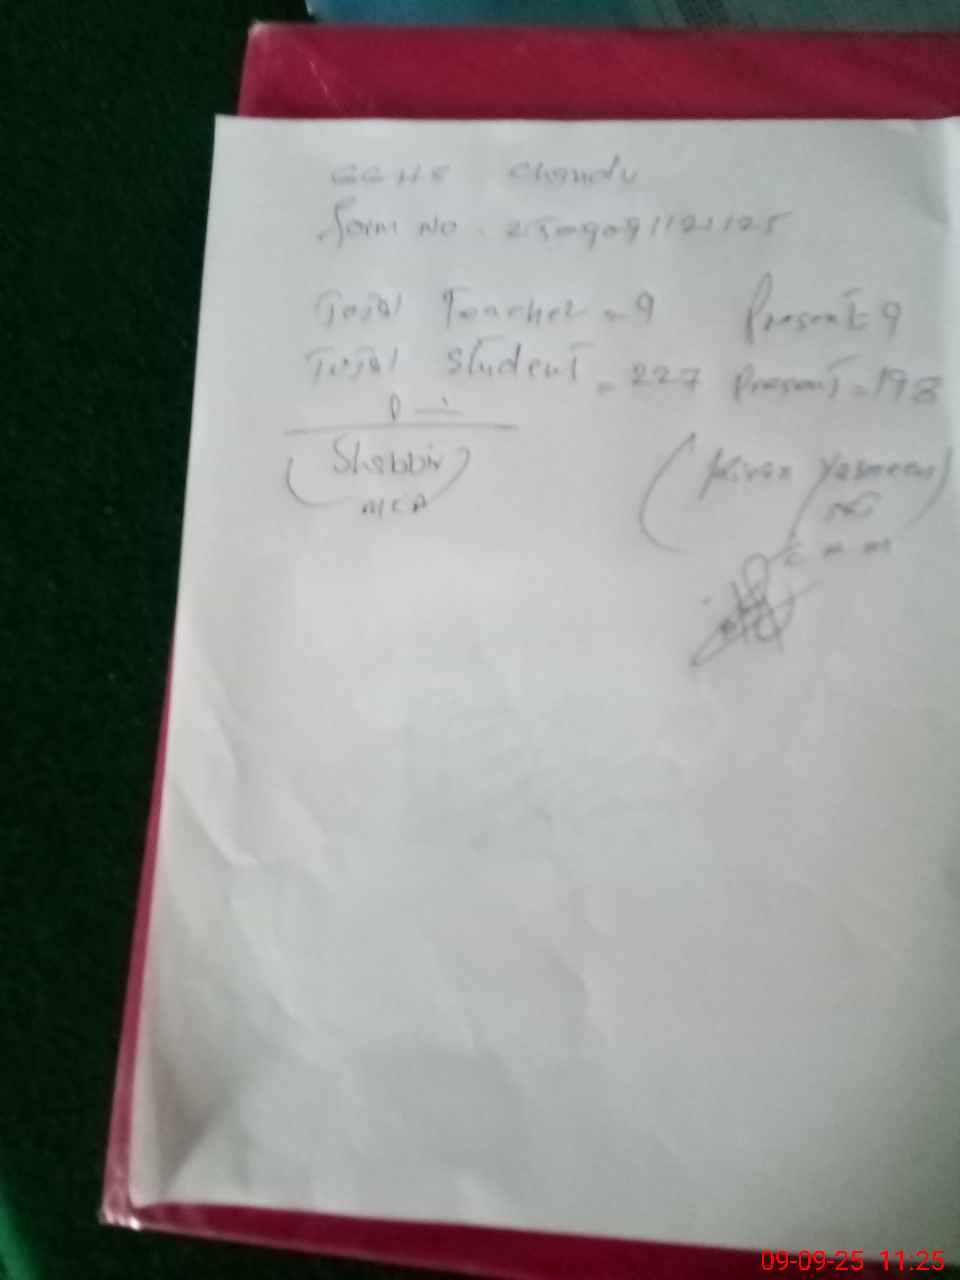 GGHS Chandu
Form No. 2509091121125
Total Teacher = 9 Present = 9
Total Student = 227 Present = 198
(Shabbir)
MEA
(Kiran Yasmeen)
09-09-25 11:25